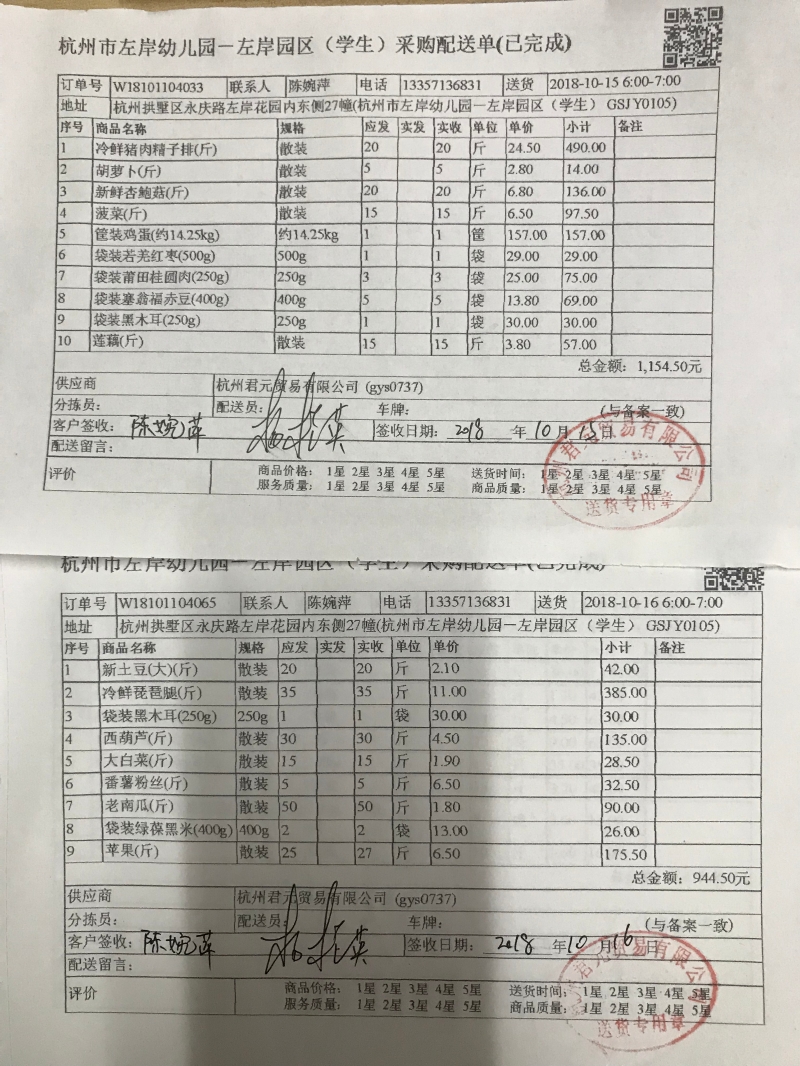 杭州市左岸幼儿园－左岸园区（学生）采购配送单(已完成)
订单号 W18101104033 联系人 陈婉萍 电话 13357136831 送货 2018-10-15 6:00-7:00
地址 杭州拱墅区永庆路左岸花园内东侧27幢(杭州市左岸幼儿园－左岸园区（学生） GSJY0105)
序号 商品名称 规格 应发 实发 实收 单位 单价 小计 备注
1 冷鲜猪肉精子排(斤) 散装 20 20 斤 24.50 490.00
2 胡萝卜(斤) 散装 5 5 斤 2.80 14.00
3 新鲜杏鲍菇(斤) 散装 20 20 斤 6.80 136.00
4 菠菜(斤) 散装 15 15 斤 6.50 97.50
5 筐装鸡蛋(约14.25kg) 约14.25kg 1 1 筐 157.00 157.00
6 袋装若羌红枣(500g) 500g 1 1 袋 29.00 29.00
7 袋装莆田桂圆肉(250g) 250g 3 3 袋 25.00 75.00
8 袋装塞翁福赤豆(400g) 400g 5 5 袋 13.80 69.00
9 袋装黑木耳(250g) 250g 1 1 袋 30.00 30.00
10 莲藕(斤) 散装 15 15 斤 3.80 57.00
总金额：1,154.50元
供应商 杭州君元贸易有限公司 (gys0737)
分拣员： 配送员： 车牌： (与备案一致)
客户签收：陈婉萍 签收日期： 2018 年 10 月 15 日
配送留言：
评价 商品价格： 1星 2星 3星 4星 5星 送货时间： 1星 2星 3星 4星 5星
服务质量： 1星 2星 3星 4星 5星 商品质量： 1星 2星 3星 4星 5星
杭州君元贸易有限公司
送货专用章
杭州市左岸幼儿园－左岸园区（学生）采购配送单(已完成)
订单号 W18101104065 联系人 陈婉萍 电话 13357136831 送货 2018-10-16 6:00-7:00
地址 杭州拱墅区永庆路左岸花园内东侧27幢(杭州市左岸幼儿园－左岸园区（学生） GSJY0105)
序号 商品名称 规格 应发 实发 实收 单位 单价 小计 备注
1 新土豆(大)(斤) 散装 20 20 斤 2.10 42.00
2 冷鲜琵琶腿(斤) 散装 35 35 斤 11.00 385.00
3 袋装黑木耳(250g) 250g 1 1 袋 30.00 30.00
4 西葫芦(斤) 散装 30 30 斤 4.50 135.00
5 大白菜(斤) 散装 15 15 斤 1.90 28.50
6 番薯粉丝(斤) 散装 5 5 斤 6.50 32.50
7 老南瓜(斤) 散装 50 50 斤 1.80 90.00
8 袋装绿葆黑米(400g) 400g 2 2 袋 13.00 26.00
9 苹果(斤) 散装 25 27 斤 6.50 175.50
总金额：944.50元
供应商 杭州君元贸易有限公司 (gys0737)
分拣员： 配送员： 车牌： (与备案一致)
客户签收：陈婉萍 签收日期： 2018 年 10 月 16 日
配送留言：
评价 商品价格： 1星 2星 3星 4星 5星 送货时间： 1星 2星 3星 4星 5星
服务质量： 1星 2星 3星 4星 5星 商品质量： 1星 2星 3星 4星 5星
杭州君元贸易有限公司
送货专用章